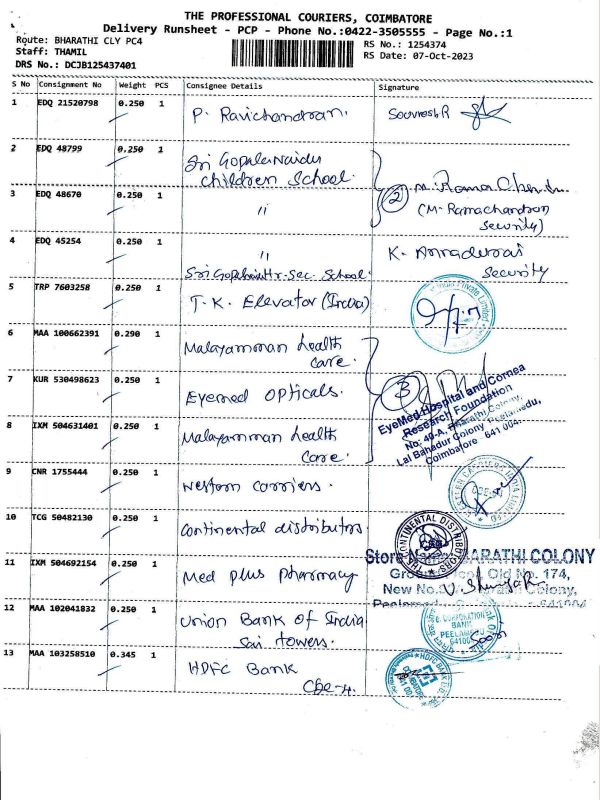 THE PROFESSIONAL COURIERS, COIMBATORE
Delivery Runsheet - PCP - Phone No.:0422-3505555 - Page No.:1
Route: BHARATHI CLY PC4
RS No.: 1254374
Staff: THAMIL
RS Date: 07-Oct-2023
DRS No.: DCJB125437401
S No Consignment No Weight PCS Consignee Details Signature
1 EDQ 21520798 0.250 1 P. Ravichandran. Souvresh.R
2 EDQ 48799 0.250 1 Sri Gopala Naidu
Children School.
3 EDQ 48670 0.250 1 " 2 M. Rama Chan
(M. Ramachandran
Security)
4 EDQ 45254 0.250 1 " K. Annadurai
Security
Sri Gopal Hr. Sec. School.
5 TRP 7603258 0.250 1 T.K. Elevator (India)
Private Limited
6 MAA 100662391 0.290 1 Malayamman health
care.
7 KUR 530498623 0.250 1 Eyemed Opticals. 3
EyeMed Hospital and Cornea
Research Foundation
No: 40-A, Bharathi Colony,
Lal Bahadur Colony, Peelamedu,
Coimbatore 641 004.
8 IXM 504631401 0.250 1 Malayamman health
care.
9 CNR 1755444 0.250 1 Western carriers.
10 TCG 50482130 0.250 1 Continental distributors
CONTINENTAL DISTRIBUTORS
11 IXM 504692154 0.250 1 Med plus pharmacy
Store Name: BHARATHI COLONY
Old No. 174,
New No. Colony,
Peelamedu 641004
12 MAA 102041832 0.250 1 Union Bank of India
Sai towers.
CORPORATION
BANK
PEELAMEDU
13 MAA 103258510 0.345 1 HDFC Bank
Cbe-4.
HDFC BANK LTD.